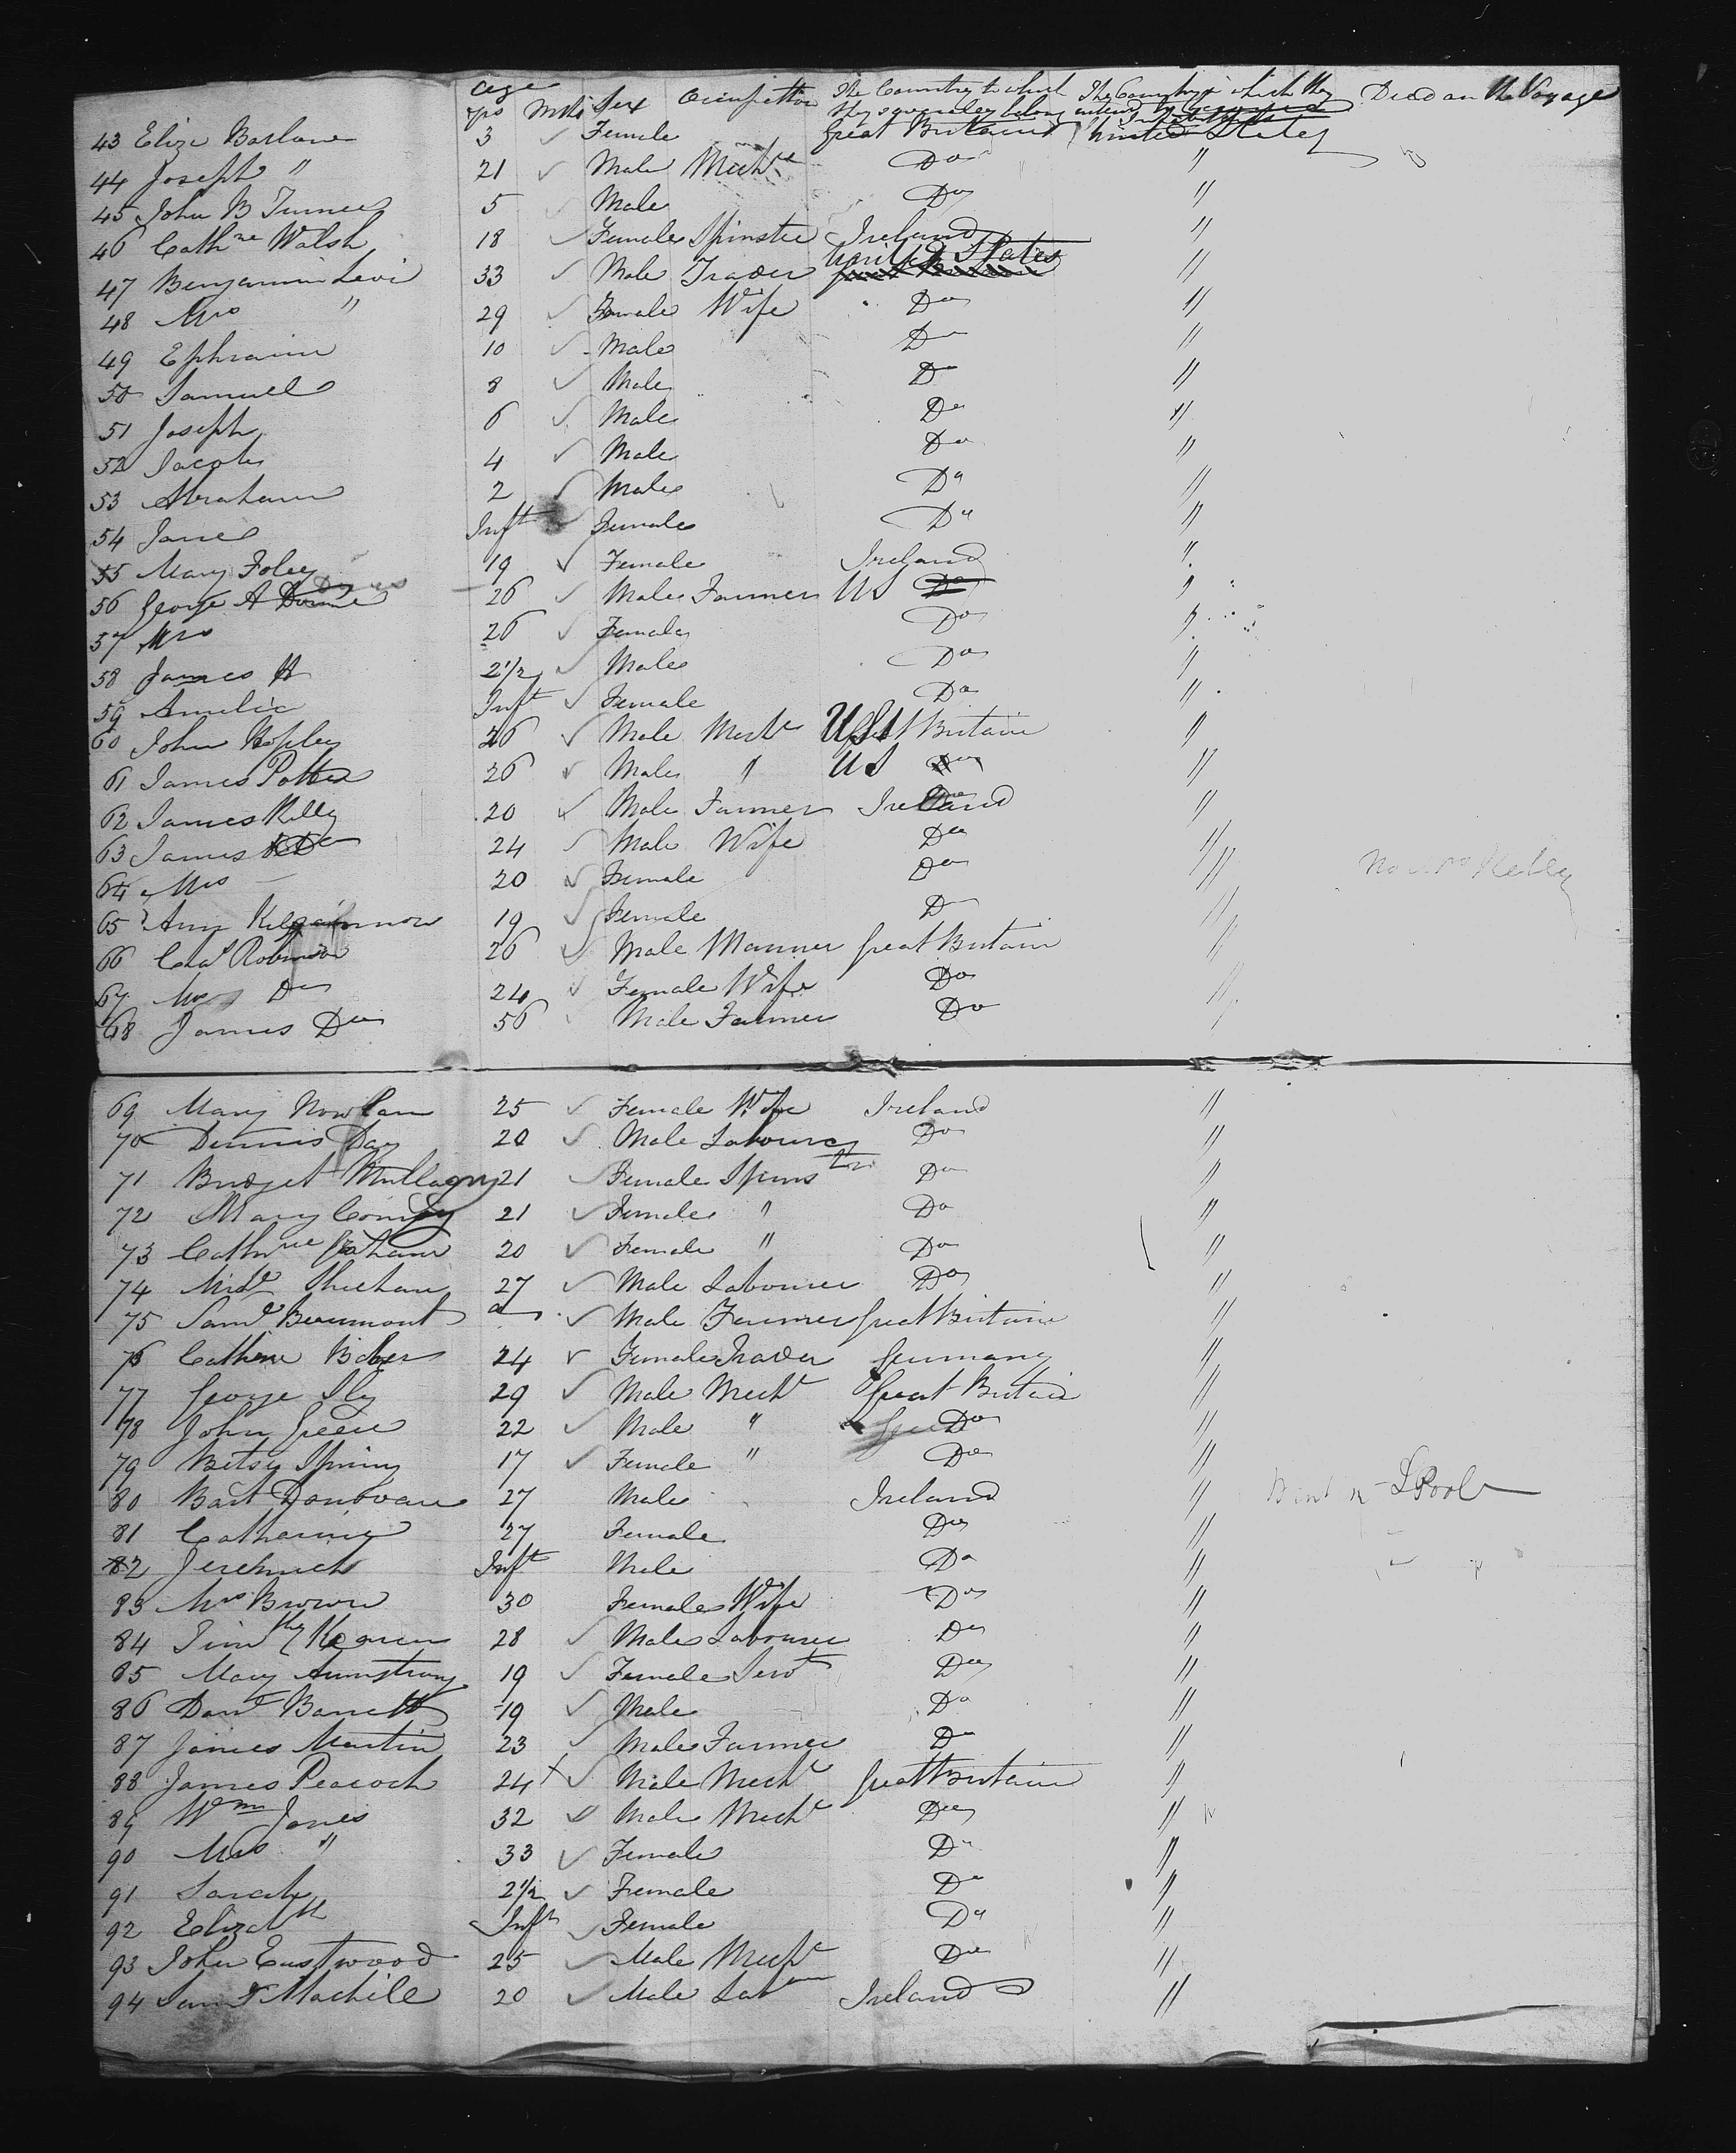 Age The Country to which The Country in which they Died on the Voyage
yrs Mths Sex Occupation they severally belong intend to
43 Eliza Barlow 3 Female Great Britain United States
44 Joseph " 21 Male Mechc Do "
45 John B Turner 5 Male Do "
46 Cathne Walsh 18 Female Spinster Ireland "
47 Benjamin Levi 33 Male Trader United States "
48 Mrs " 29 Female Wife Do "
49 Ephraim 10 Male Do "
50 Samuel 8 Male Do "
51 Joseph 6 Male Do "
52 Jacob 4 Male Do "
53 Abraham 2 Male Do "
54 Jane Inft Female Do "
55 Mary Foley 19 Female Ireland "
56 George A 26 Male Farmer US Do "
57 Mrs 26 Female Do "
58 James H 2 1/2 Male Do "
59 Amelia Inft Female Do "
60 John Hopley 26 Male Mechc US Britain "
61 James Potter 26 Male " US Do "
62 James Kelly 20 Male Farmer Ireland "
63 James Do 24 Male Wife Do "
64 Mrs 20 Female Do " No Mrs Kelly
65 Ann 19 Female Do "
66 Chas Robinson 26 Male Mariner Great Britain "
67 Mrs Do 24 Female Wife Do "
68 James Do 56 Male Farmer Do "
69 Mary Nowlan 25 Female Wife Ireland "
70 Dennis Day 20 Male Labourer Do "
71 Bridget Mullagny 21 Female Spinster Do "
72 Mary 21 Female " Do "
73 Cathne 20 Female " Do "
74 Michl Sheehan 27 Male Labourer Do "
75 Saml Beaumont Do Male Farmer Great Britain "
76 Cathine 24 Female Trader Germany "
77 George Sly 29 Male Mechc Great Britain "
78 John Green 22 Male " Do "
79 Betsy Spring 17 Female " Do "
80 Bart Donovan 27 Male Ireland " LPool
81 Catharine 27 Female Do "
82 Jeremiah Inft Male Do "
83 Mrs Brown 30 Female Wife Do "
84 Timthy 28 Male Labourer Do "
85 Mary Armstrong 19 Female Servt Do "
86 Danl Barrett 19 Male Do "
87 James Martin 23 Male Farmer Do "
88 James Peacock 24 Male Mechc Great Britain "
89 Wm Jones 32 Male Mechc Do "
90 Mrs " 33 Female Do "
91 Sarah 2 1/2 Female Do "
92 Elizabth Inft Female Do "
93 John Eastwood 25 Male Mechc Do "
94 Saml 20 Male Labr Ireland "